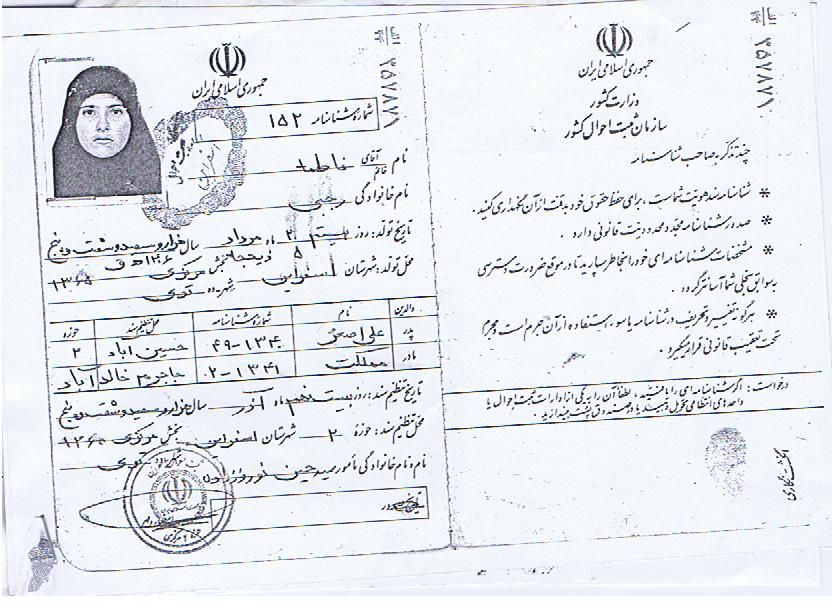 جمهوری اسلامی ایران
شماره شناسنامه ۱۵۲
نام آقای خانم فاطمه
نام خانوادگی رجبی
تاریخ تولد: روز بیست ماه مرداد سال هزار و سیصد و شصت و پنج
۱۳۶۵
محل تولد: شهرستان اسفراین بخش مرکزی
شهر-ده توی
والدین نام شماره شناسنامه محل تنظیم سند حوزه
پدر علی اصغر ۴۹-۱۳۴۰ حسین آباد ۲
مادر مملکت ۲-۱۳۴۱ جاجرم خالد آباد
تاریخ تنظیم سند: روز بیست ماه آذر سال هزار و سیصد و شصت و پنج
محل تنظیم سند: حوزه ۲ شهرستان اسفراین بخش مرکزی
نام و نام خانوادگی مأمور سید حسین نوروزیان
الف
۴۴
۳۵۷۸۷۱
جمهوری اسلامی ایران
وزارت کشور
سازمان ثبت احوال کشور
چند تذکر به صاحب شناسنامه
* شناسنامه سند هویت شماست، برای حفظ حقوق خود به دقت از آن نگهداری کنید.
* صدور شناسنامه مجدد محدودیت قانونی دارد.
* مشخصات شناسنامه‌ای خود را بخاطر بسپارید تا در موقع ضرورت دسترسی
به سوابق سجلی شما آسانتر گردد.
* هرگونه تغییر و تحریف در شناسنامه یا سوء استفاده از آن جرم است و مجرم
تحت تعقیب قانونی قرار میگیرد.
درخواست: اگر شناسنامه‌ای را یافتید، لطفاً آن را به یکی از ادارات ثبت احوال یا
واحدهای انتظامی تحویل دهید یا در صندوق پست بیندازید.
انگشت نگاری
الف
۴۴
۳۵۷۸۷۱